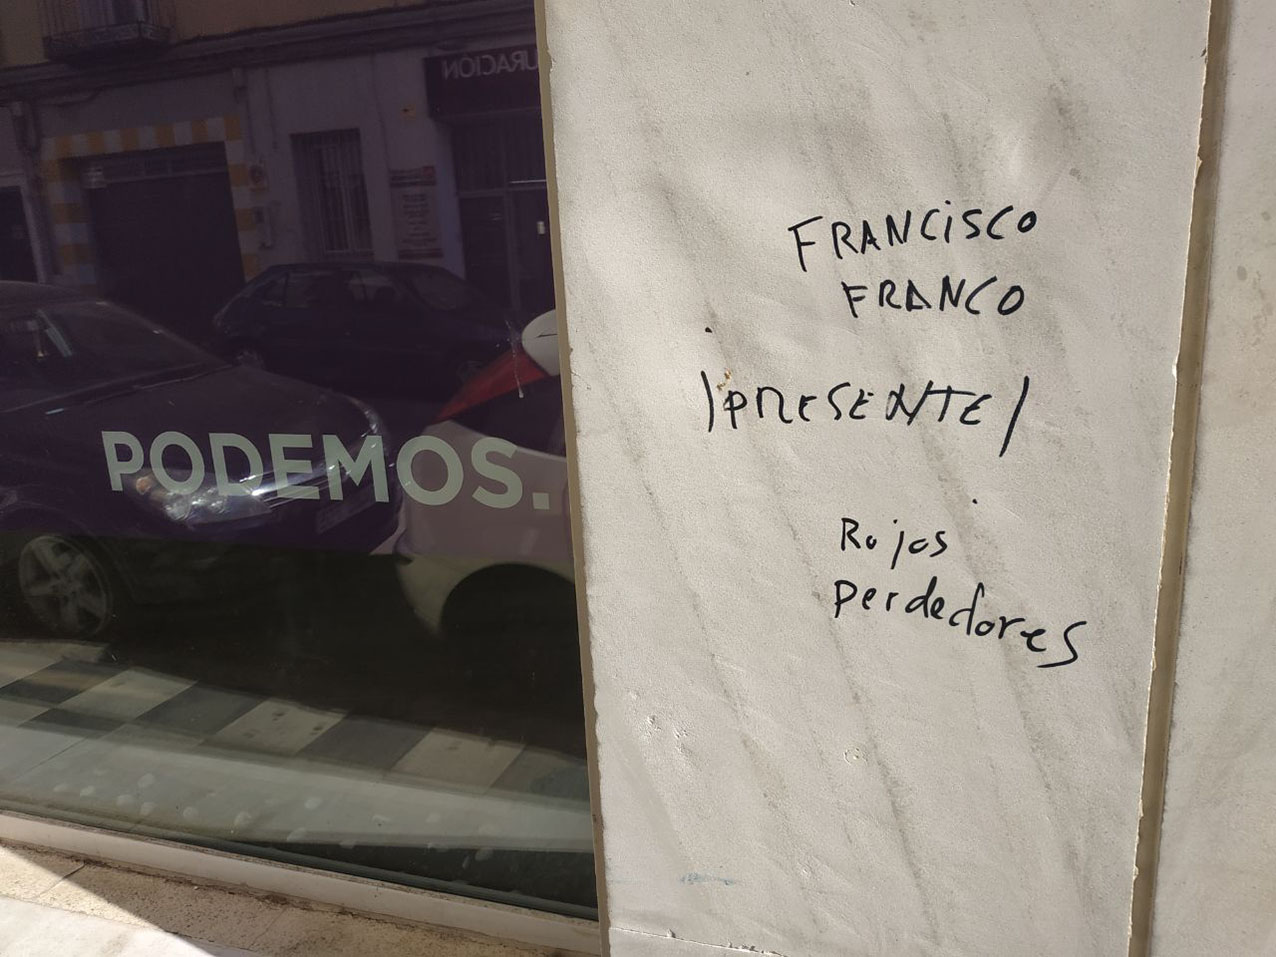 URACIÓN
PODEMOS.
FRANCISCO
FRANCO
¡PRESENTE!
Rojos
perdedores